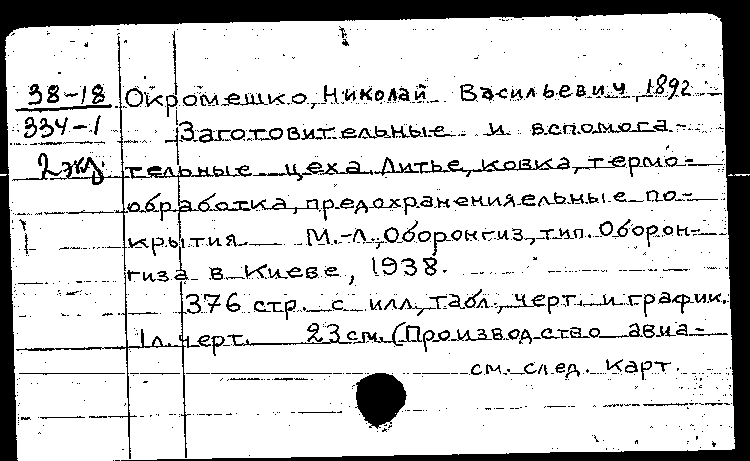 38-18 Окромешко, Николай Васильевич, 1892
334-1 Заготовительные и вспомога-
2 экз. тельные цеха. Литье, ковка, термо-
обработка, предохранительные по-
крытия. М.-Л., Оборонгиз, тип. Оборон-
гиза в Киеве, 1938.
376 стр. с илл., табл., черт. и график.
1 л. черт. 23 см. (Производство авиа-
см. след. карт.